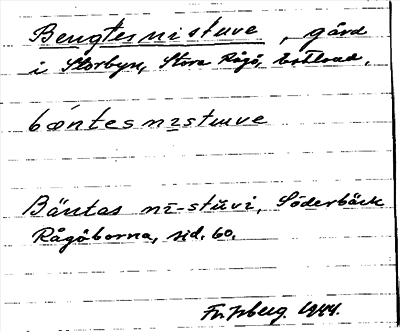 Bengtesnistuve, gård
i Storbyn, Stora Rågö, Estland.
bæ̀ntesnɪstuuve
Bäntas nī-stŭvi, Söderbäck
Rågöborna, sid. 60.
1944.